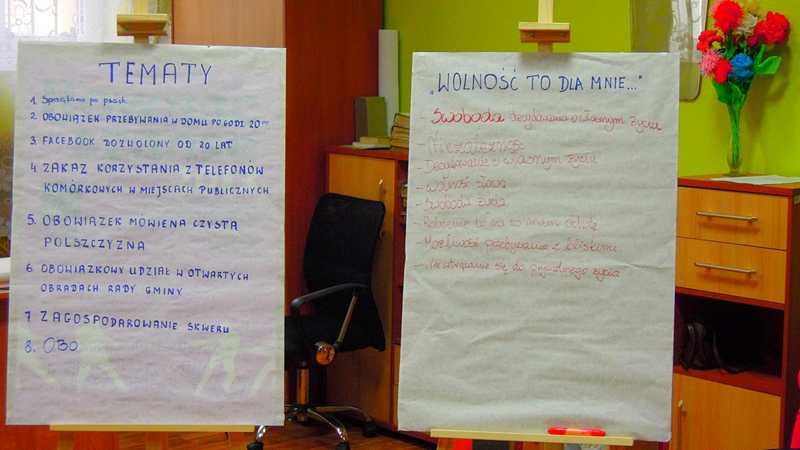 TEMATY
1. Sprzątanie po psach
2. OBOWIĄZEK PRZEBYWANIA W DOMU PO GODZ. 20⁰⁰
3. FACEBOOK DOZWOLONY OD 20 LAT
4 ZAKAZ KORZYSTANIA Z TELEFONÓW
KOMÓRKOWYCH W MIEJSCACH PUBLICZNYCH
5. OBOWIĄZEK MÓWIENA CZYSTĄ
POLSZCZYZNĄ
6. OBOWIĄZKOWY UDZIAŁ W OTWARTYCH
OBRADACH RADY GMINY
7 ZAGOSPODAROWANIE SKWERU
8. OBO
„WOLNOŚĆ TO DLA MNIE..."
- Swoboda decydowania o własnym życiu
- Niezależność
- Decydowanie o własnym życiu
- Wolność słowa
- Swoboda życia
- Robienie to na co mam ochotę
- Możliwość przebywania z bliskimi
- Nie wtrącanie się do prywatnego życia